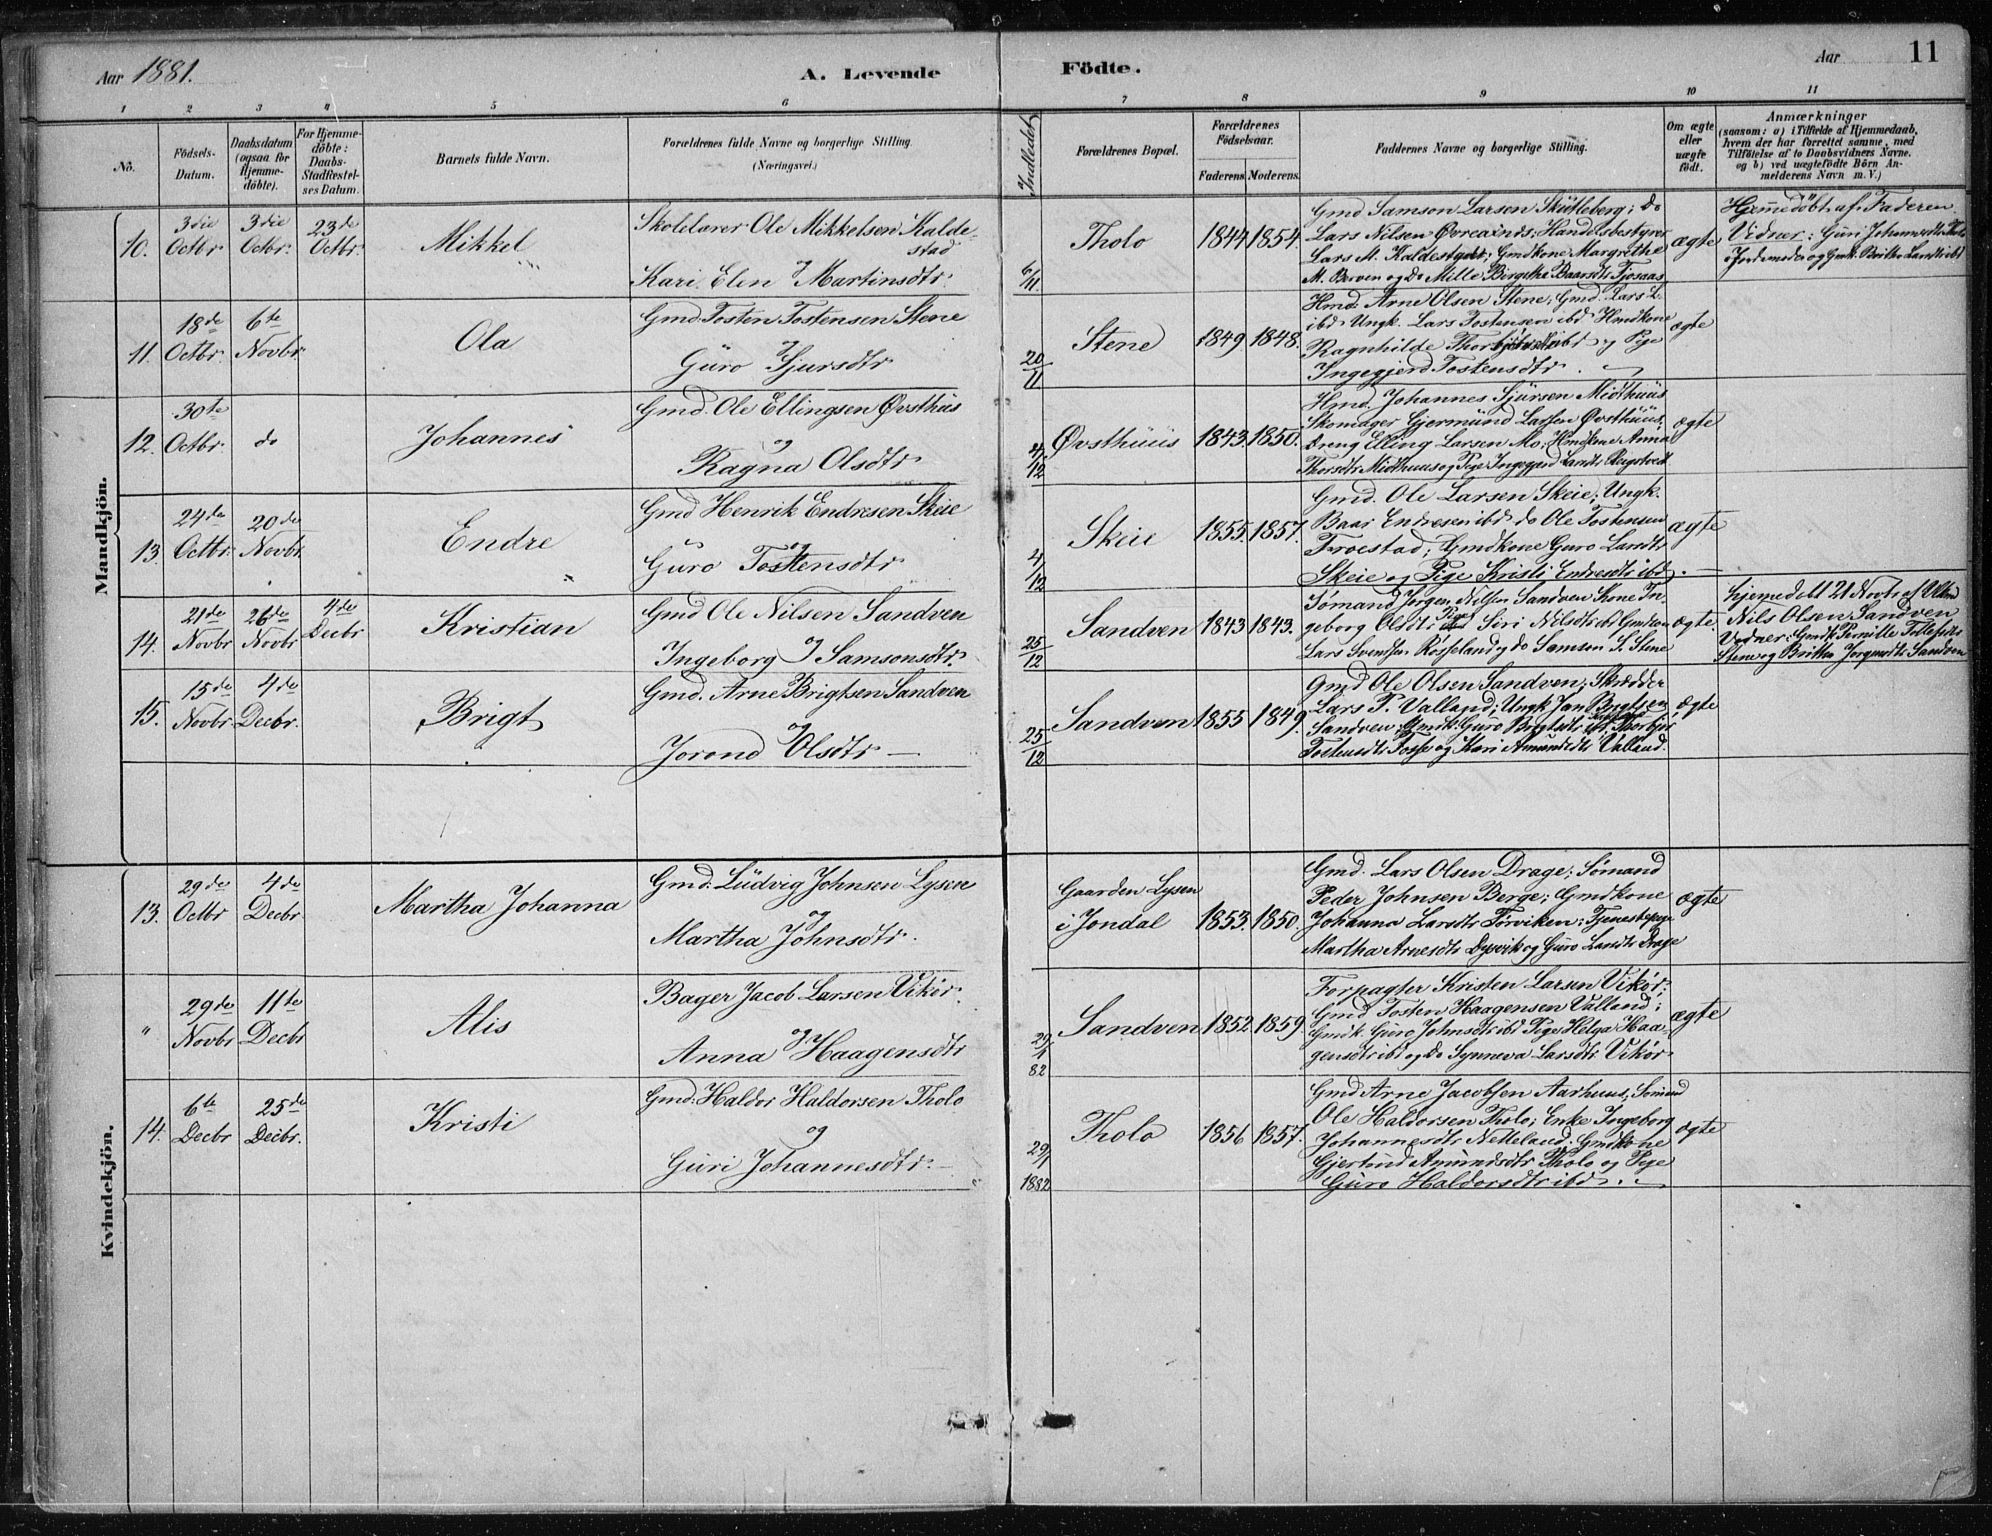 Aar 1881.
A. Levende
Födte.
Aar
11
1 2 3 4 5 6 7 8 9 10 11
No.
Födsels-
Datum.
Daabsdatum
(ogsaa for
Hjemme-
döbte).
For Hjemme-
döbte:
Daabs-
Stadfæstel-
ses Datum.
Barnets fulde Navn.
Forældrenes fulde Navne og borgerlige Stilling.
(Næringsvei.)
Indledet
Forældrenes Bopæl.
Forældrenes
Födselsaar.
Faderens. Moderens.
Faddernes Navne og borgerlige Stilling.
Om ægte
eller
uægte
födt.
Anmærkninger
(saasom: a) i Tilfælde af Hjemmedaab,
hvem der har forrettet samme, med
Tilföielse af to Daabsvidners Navne.
og b) ved uægtefödte Börn An-
melderens Navn m. V.)
Mandkjön.
10.
3die
Octbr.
3die
Octbr.
23de
Octbr.
Mikkel
Skolelærer Ole Mikkelsen Kalde-
stad
og
Kari Elen Martinsdtr.
6/11
Tholo
1844 1854.
Gmd Samson Larsen Skutleberg; do
Lars Nilsen Øvreainds; Handelsbestyrer
Lars M. Kaldestad; Gmdkone Margrethe
M. Berven og do Mille Birgithe Baardsdtr Fosaas
ægte
Hjemmedøbt af Faderen
Vidner: Guri Johannesdtr Tholo
Jordemoder og Gmk. Britha Larsdtr ibd
11.
18de
Octbr.
6te
Novbr.
Ola
Gmd. Tosten Tostensen Stene
og
Guro Sjursdtr
20/11
Stene
1849 1848.
Hmd. Arne Olsen Stene; Gmd. Lars L.
ibd Ungk. Lars Tostensen ibd Hmdkone
Ragnhilde Thorbjørnsdtr ibd og Pige
Ingegjerd Tostensdtr.
ægte
12.
30te
Octbr.
do
Johannes
Gmd. Ole Ellingsen Øvsthus
og
Ragna Olsdtr
4/12
Øvsthuus
1843. 1850.
Hmd. Johannes Sjursen Midthuus
Skomager Gjermund Larsen Øvsthuus.
Dreng Elling Larsen Mo; Hmdkone Anna
Thorsdtr Midthuus og Pige Ingegjerd Larsdtr
ægte
13.
24de
Octbr.
20de
Novbr.
Endre
Gmd Henrik Endresen Skeie
og
Guro Tostensdtr
4/12
Skeie
1855. 1857.
Gmd. Ole Larsen Skeie, Ungk.
Baar Endresen ibd do Ole Tostensen
Froestad; Gmdkone Guro Larsdtr
Skeie og Pige Kristi Endresdtr ibd
ægte
14.
21de
Novbr
26de
Novbr
4de
Decbr.
Kristian
Gmd Ole Nilsen Sandven
og
Ingeborg Samsonsdtr.
25/12
Sandven
1843 1843.
Sømand Jørgen Nilsen Sandven Kone In-
geborg Olsdtr Pige Siri Nilsdtr ibd Gmdkone
Lars Svensen Røsseland og do Samson S. Stene
ægte.
Hjemmedøbt 21 Novbr af
Nils Olsen Sandven
Vidner: Gmdk Pernille Tollefsdtr
Stene og Britha Jørgensdtr Sandven
15.
15de
Novbr
4de
Decbr.
Brigt
Gmd. Arne Brigtsen Sandven
og
Jorond Olsdtr
25/12
Sandven
1855 1849.
Gmd Ole Olsen Sandven; Skrædder
Lars P. Valland; Ungk Jan Brigtsen
Sandven Gmdk. Guro Brigtsdtr ibd, Thorbjør
Tostensdtr Fosse og Kari Amundsdtr Valland.
ægte
Kvindekjön.
13.
29de
Octbr
4de
Decbr
Martha Johanna
Gmd. Ludvig Johnsen Lysen
og
Martha Johnsdtr.
Gaarden Lysen
i Jondal
1853. 1850.
Gmd. Lars Olsen Drage; Sømand
Peder Johnsen Berge; Gmdkone
Johanna Larsdtr Tørviken; Tjenestepige
Martha Arnesdtr Dysvik og Guro Larsdtr Drage
ægte
"
29de
Novbr
11te
Decbr
Alis
Bager Jacob Larsen Vikør.
og
Anna Haagensdtr
29/1
82
Sandven
1852. 1859.
Forpagter Kristen Larsen Vikør;
Gmd Tosten Haagensen Valland;
Gmdk Guro Johnsdtr ibd Pige Helga Haa-
gensdtr ibd og do Synneva Larsdtr Vikør
ægte
14.
6te
Decbr
25de
Decbr.
Kristi
Gmd. Haldor Haldorsen Tholo
og
Guri Johannesdtr.
29/1
1882
Tholo
1856 1857.
Gmd Arne Jacobsen Aarhuus, Sømand
Ole Haldorsen Tholo; Enke Ingeborg
Johannesdtr Netteland; Gmdkone
Gjertrud Amundsdtr Tholo og Pige
Guro Haldorsdtr ibd.
ægte